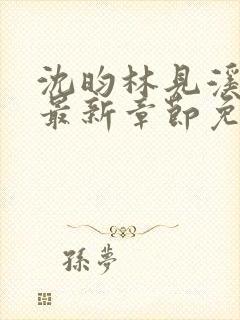 沈昀林見溪
最新章節免
孫夢